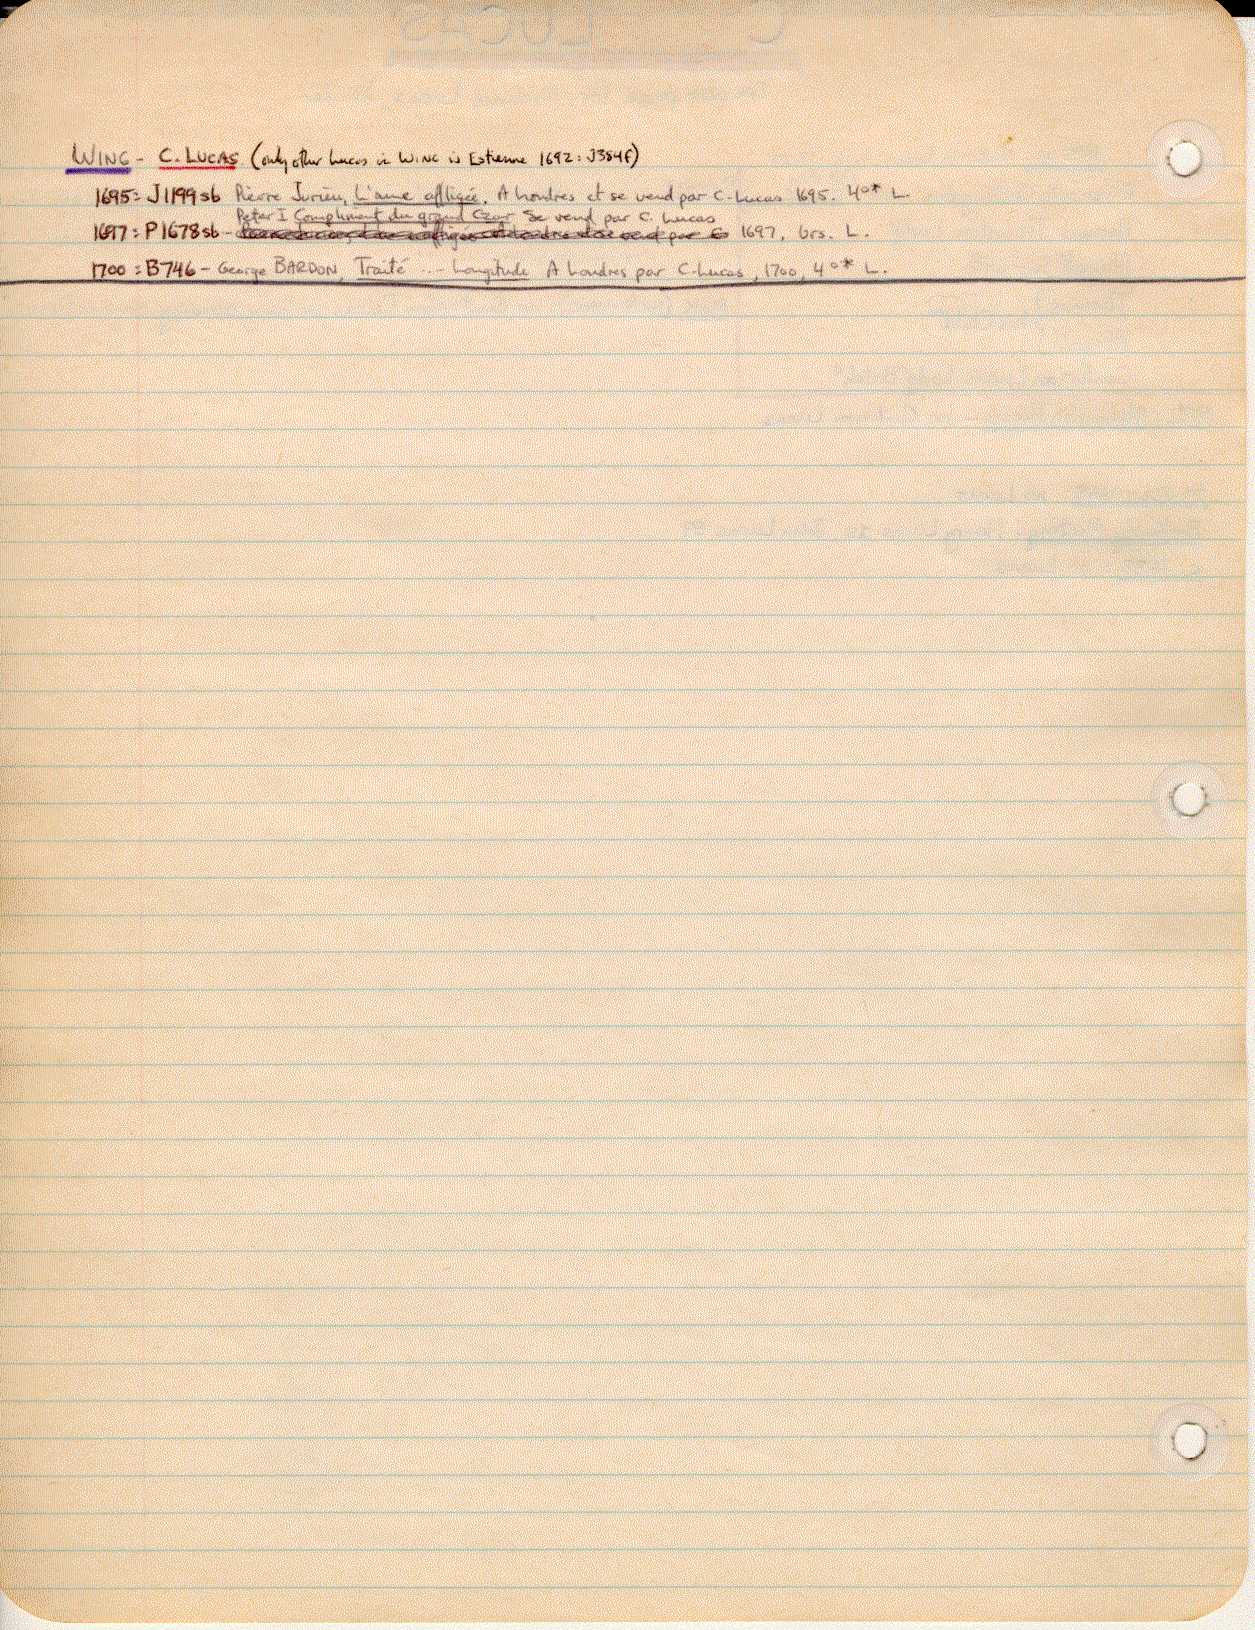 WING - C. LUCAS (only other Lucas in WING is Estienne 1692: J384F)
1695: J1199sb Pierre Jurieu, L'ame affligée. A Londres et se vend par C. Lucas 1695. 4°* L.
Peter I Compliment du grand Czar Se vend par C. Lucas
1697: P1678sb - 1697, brs. L.
1700: B746 - George BARDON, Traité ... - Longitude A Londres par C. Lucas, 1700, 4°* L.